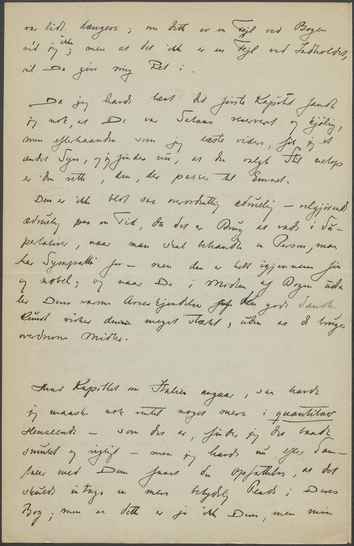 var lidt længere; om dette er en Fejl ved Bogen
ved jeg ikke; men at det ikke er en Fejl ved Indholdet,
vil De give mig Ret i.
Da jeg havde læst det første Kapitel fandt
jeg nok, at De var reserveret og kjølig,
men efterhaanden som jeg læste videre, fik jeg et
andet Syn, og jeg finder nu, at den valgte Stil netop
er den rette, den, der passer til Emnet.
Den er ikke blot saa overordentlig ædruelig — velgjørende
ædruelig paa en Tid, da det er Brug at vade i Su-
perlativer, naar man skal behandle en Person, man
har Sympathi for — men den er helt igjennem fin
og nobel; og naar De i Midten af Bogen
Deres varme den gode danske
Kunst virker denne meget stærkt, uden at De bruger
overdrevne Midler.
Hvad Kapitlet om Italien angaar, saa havde
jeg maaske nok ventet noget mere i quantitativ
Henseende — som det er, finder jeg det baade
smukt og rigtigt — men jeg havde nu efter Sam-
taler med Dem faaet den Opfattelse, at det
skulde indtage en mere betydelig Plads i Deres
Bog; men er dette er jo ikke Deres, men min